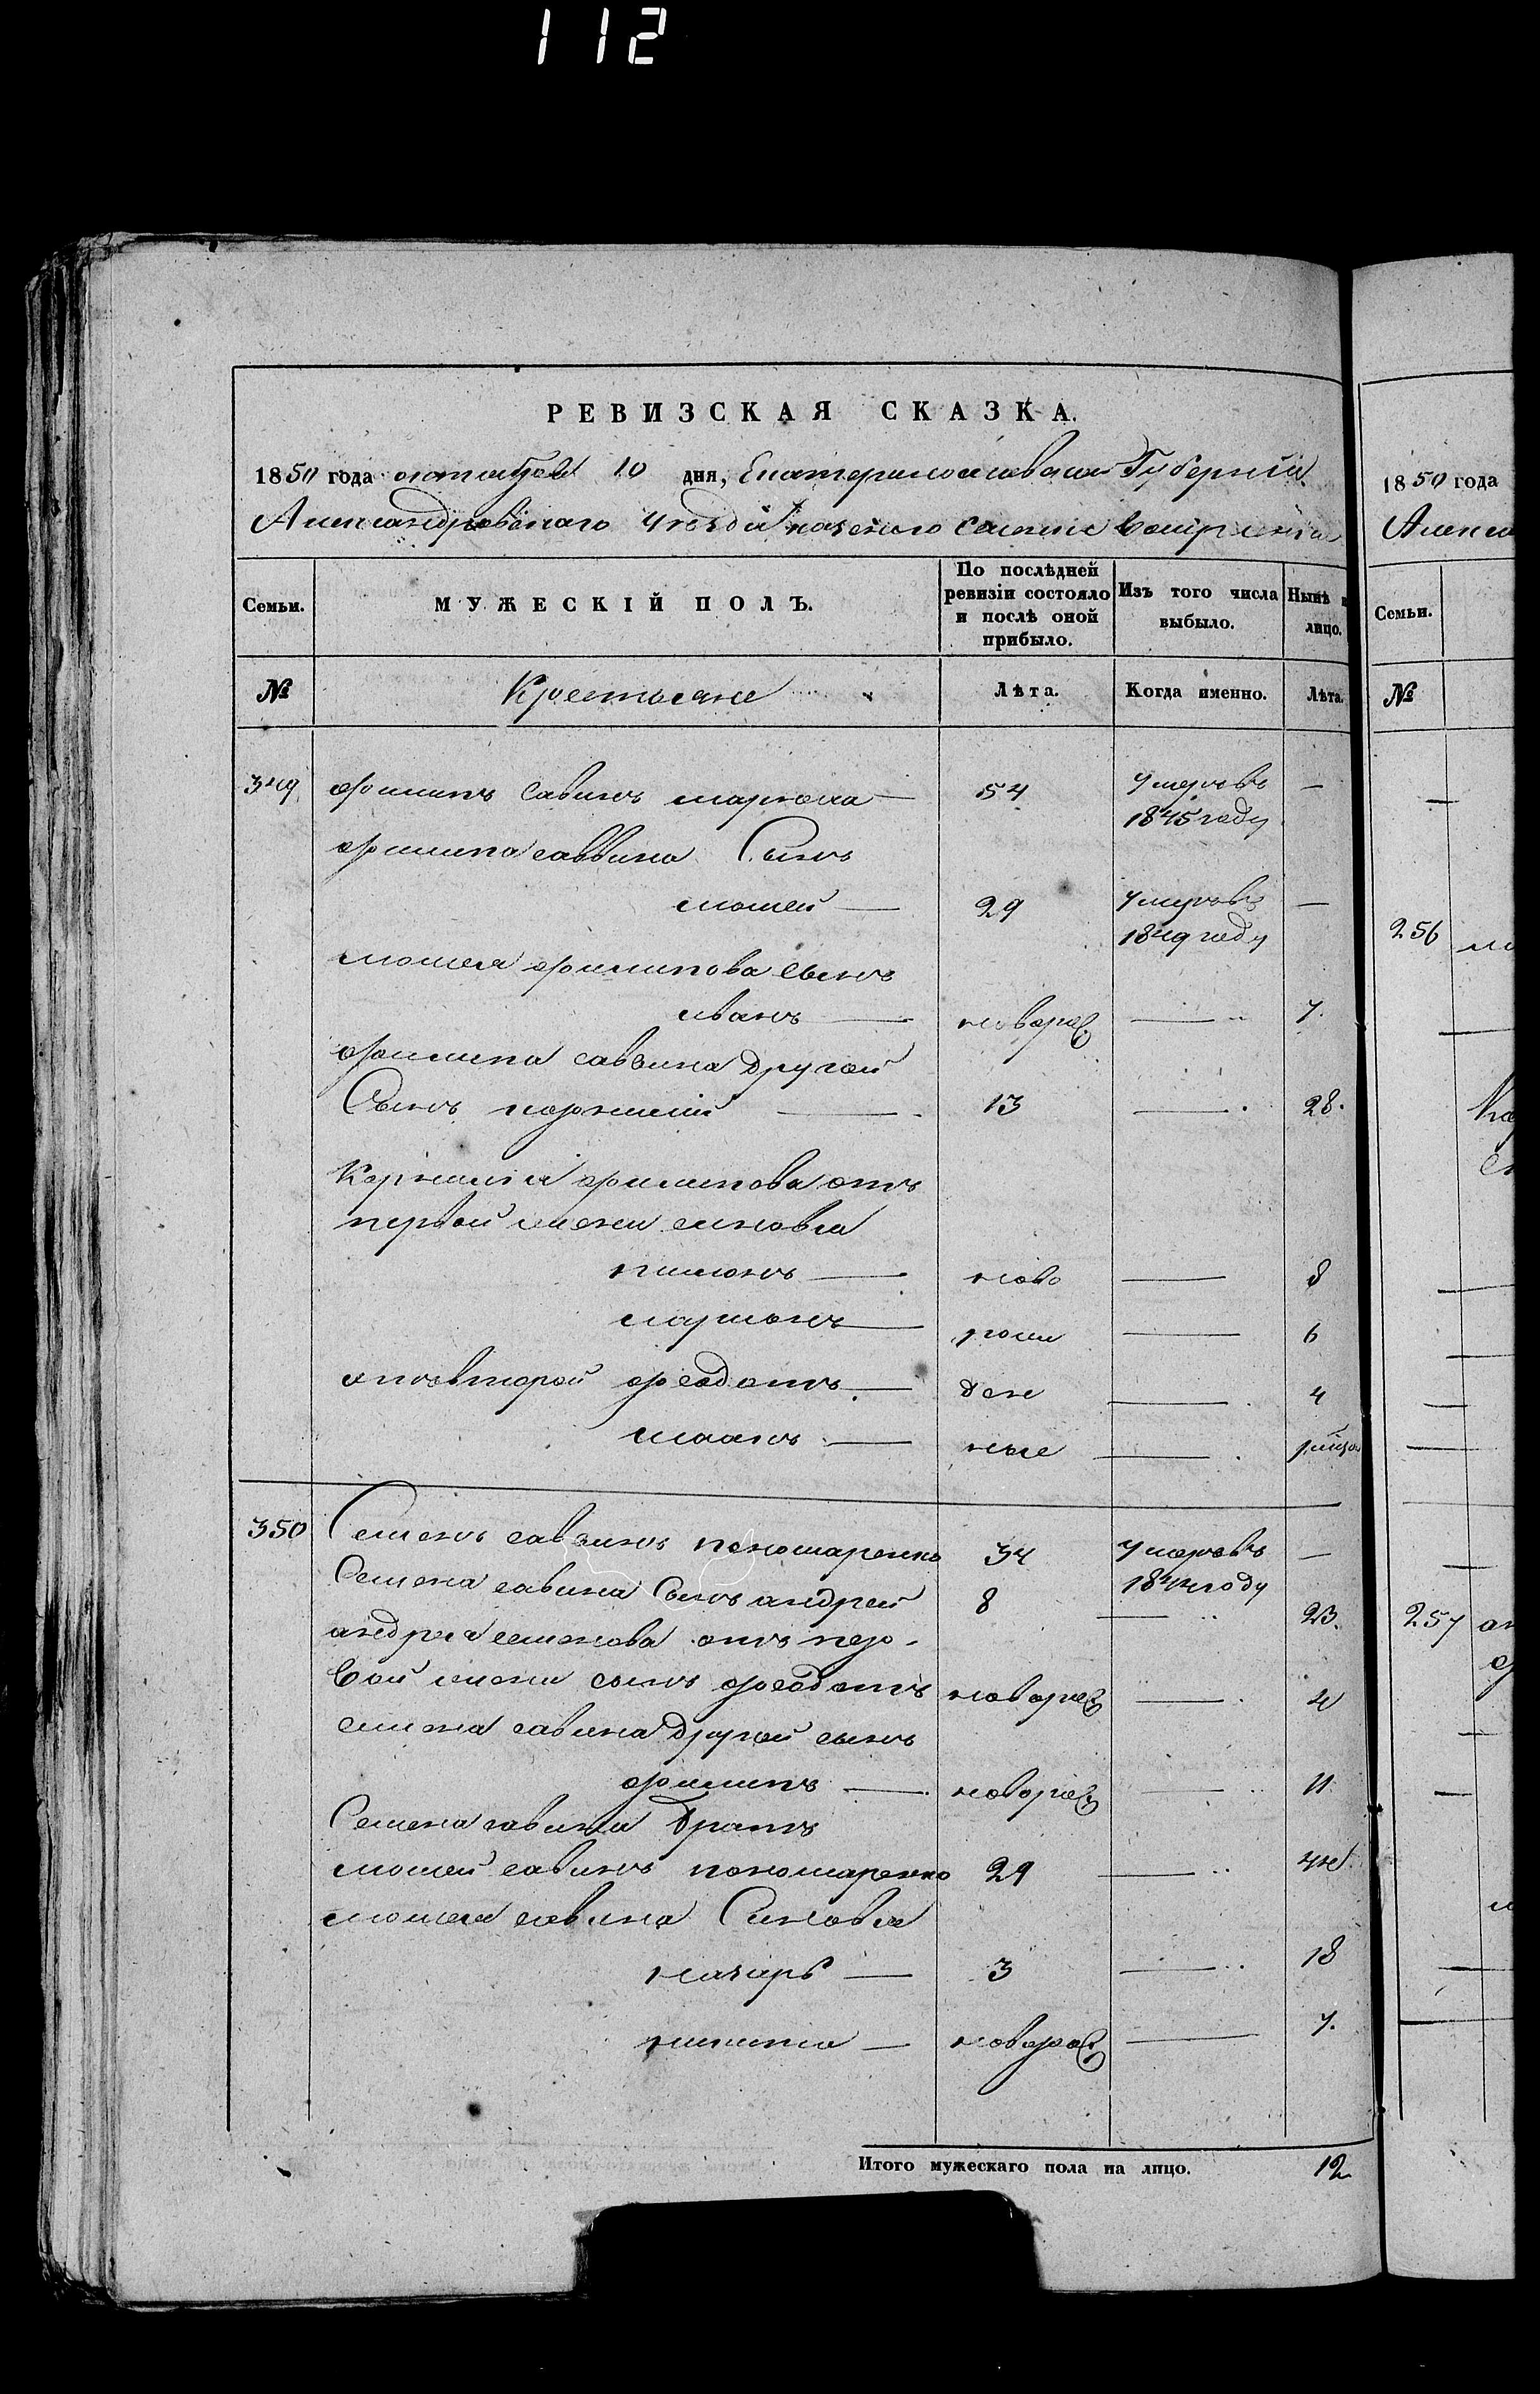 112
РЕВИЗСКАЯ СКАЗКА.
1850 года октября 10 дня, Екатеринославской Губернии
Александровскаго уезда казенного селения
Семьи. МУЖЕСКІЙ ПОЛЪ. По послѣдней ревизіи состояло и послѣ оной прибыло. Изъ того числа выбыло. Нынѣ лицо.
№ Крестьяне Лѣта. Когда именно. Лѣта.
349 филипъ Савинъ 54 умеръ въ 1845 году —
филипа саввина Сынъ
мосей — 29 умеръ въ 1849 году —
мосея филипова сынъ
иванъ — новорож — 7.
филипа саввина другой
Сынъ корнилий — 13 — 28.
Корнилия филипова отъ
первой жены синовья
пимонъ — ново — 8
мартонъ — рож — 6
отъ второй федотъ — ден — 4
— ные —
350 Семенъ саввинъ пономаренко 34 умеръ въ году —
Семена савина Сынъ андрей 8 — 23.
андрея семенова отъ пер-
вой жены сынъ федотъ новорож —
семена савина другой сынъ
филипъ — новорож — 11
Семена савина братъ
мосей савинъ пономаренко 29 — 44
мосея савина Синовья
назаръ — 3 — 18
никита — новорож — 7.
Итого мужескаго пола на лицо. 12
1850 года
Алекса
Семьи.
№
256
257